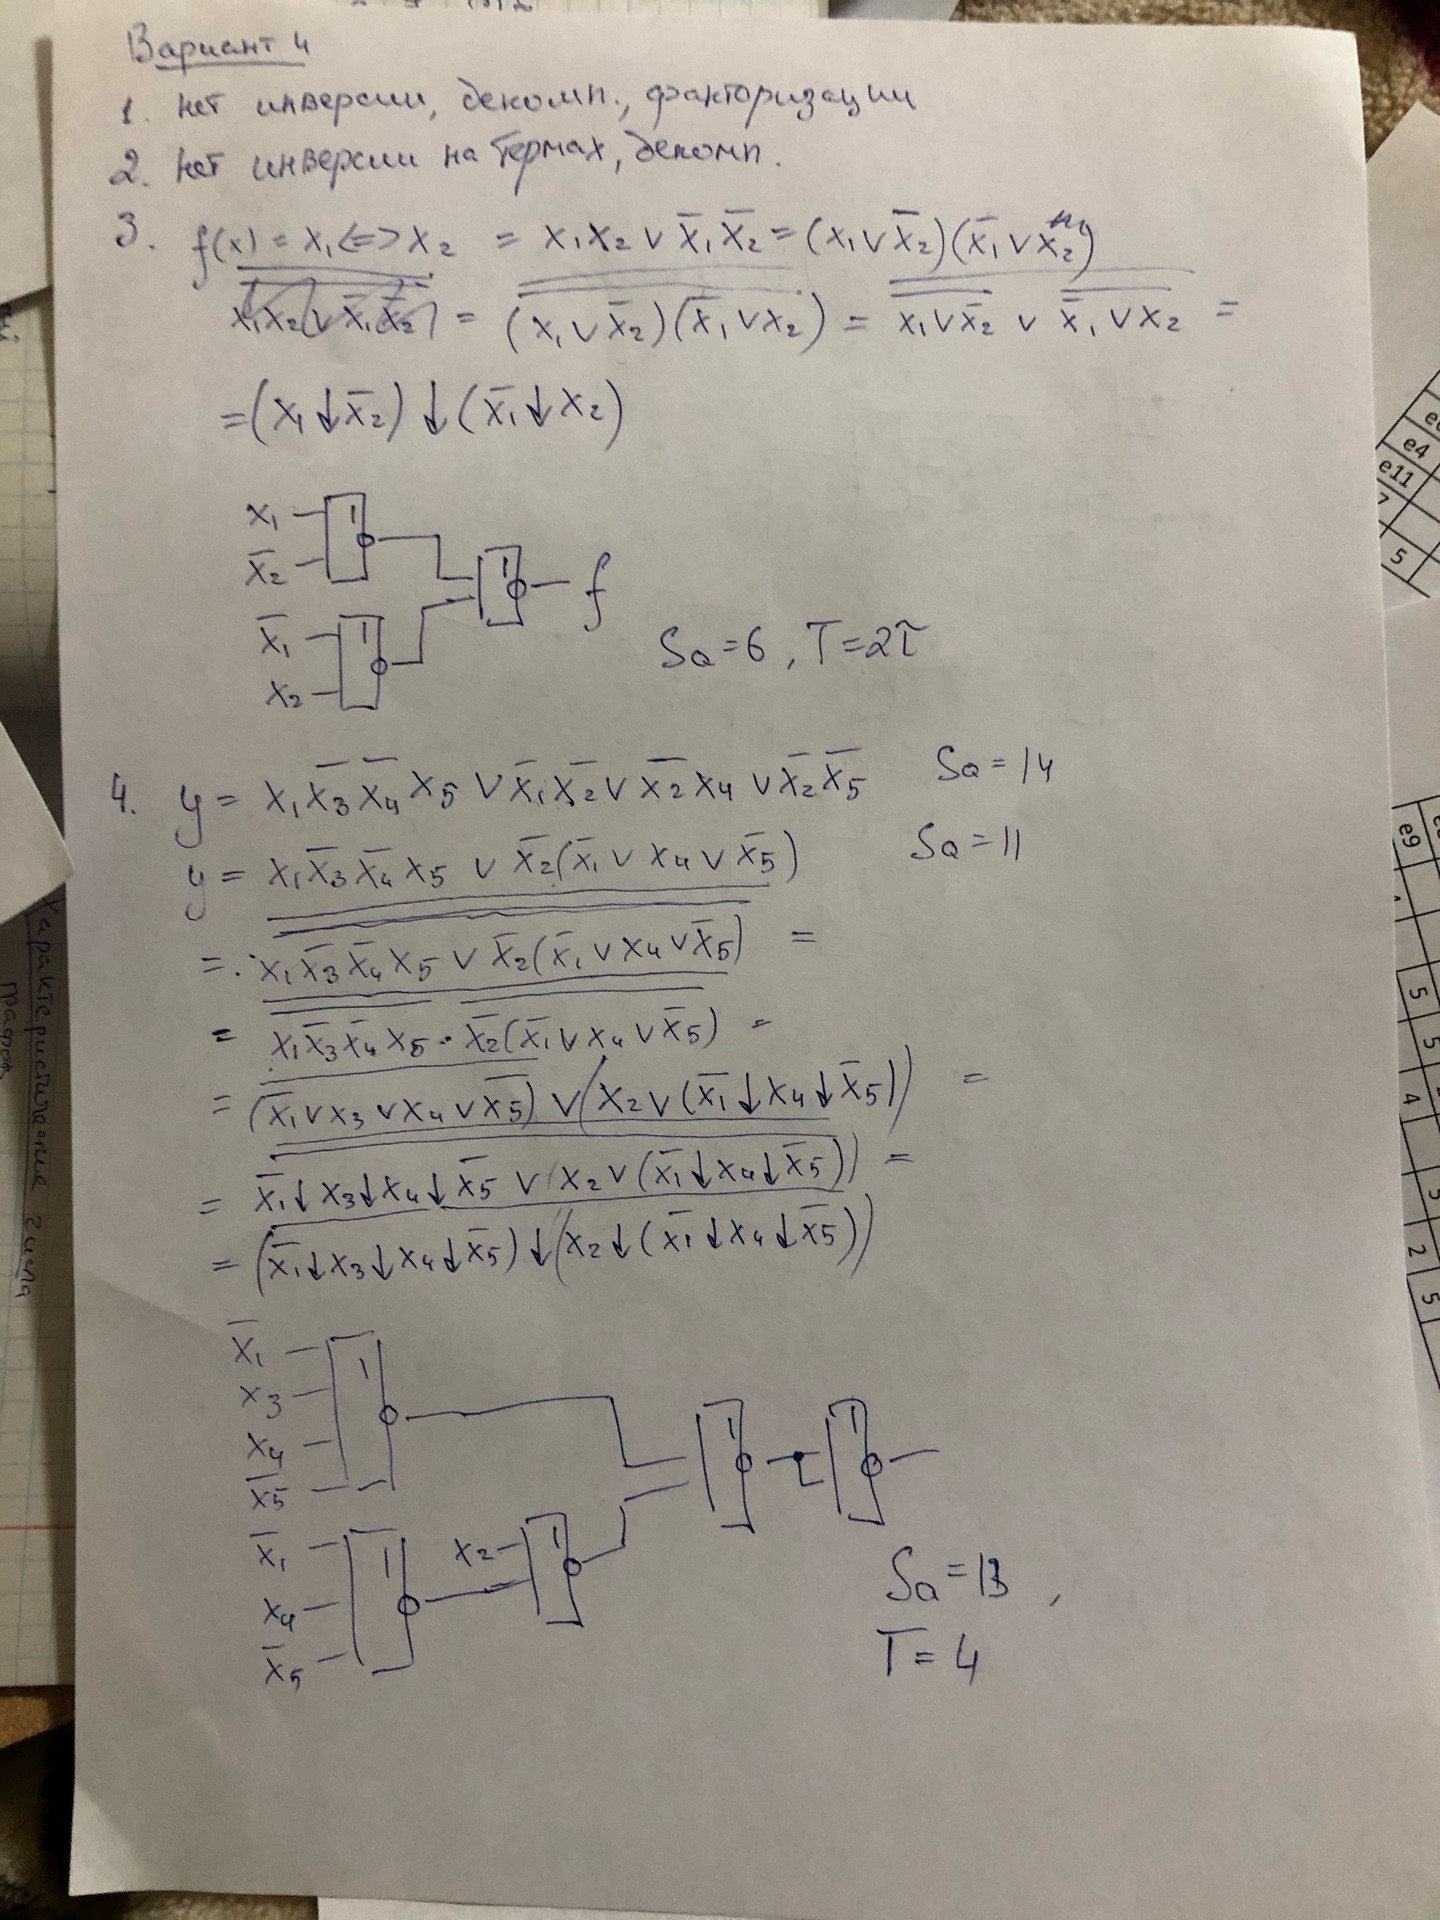 Вариант 4
1. нет инверсии, декомп., факторизации
2. нет инверсии на термах, декомп.
3. f(x) = x₁<=>x₂ = x₁x₂ ∨ x̄₁x̄₂ = (x₁∨x̄₂)(x̄₁∨x₂)
= (x₁∨x̄₂)(x̄₁∨x₂) = x₁∨x̄₂ ∨ x̄₁∨x₂ =
=(x₁↓x̄₂)↓(x̄₁↓x₂)
x₁
x̄₂
x̄₁
x₂
1
1
1
f
Sa=6, T=2τ
4. y = x₁x̄₃x̄₄x₅ ∨ x̄₁x̄₂ ∨ x̄₂x₄ ∨ x̄₂x̄₅ Sa=14
y = x₁x̄₃x̄₄x₅ ∨ x̄₂(x̄₁ ∨ x₄ ∨ x̄₅) Sa=11
= x₁x̄₃x̄₄x₅ ∨ x̄₂(x̄₁ ∨ x₄ ∨ x̄₅) =
= x₁x̄₃x̄₄x₅ · x̄₂(x̄₁ ∨ x₄ ∨ x̄₅) =
= (x̄₁ ∨ x₃ ∨ x₄ ∨ x̄₅) ∨ (x₂ ∨ (x̄₁↓x₄↓x̄₅)) =
= x̄₁↓x₃↓x₄↓x̄₅ ∨ (x₂ ∨ (x̄₁↓x₄↓x̄₅)) =
= (x̄₁↓x₃↓x₄↓x̄₅)↓(x₂↓(x̄₁↓x₄↓x̄₅))
x̄₁
x₃
x₄
x̄₅
1
1
1
x̄₁
x₄
x̄₅
1
x₂
1
Sa=13,
T=4
характеристические числа
графов
e4
e11
7
5
e9
5
5
4
5
2
5